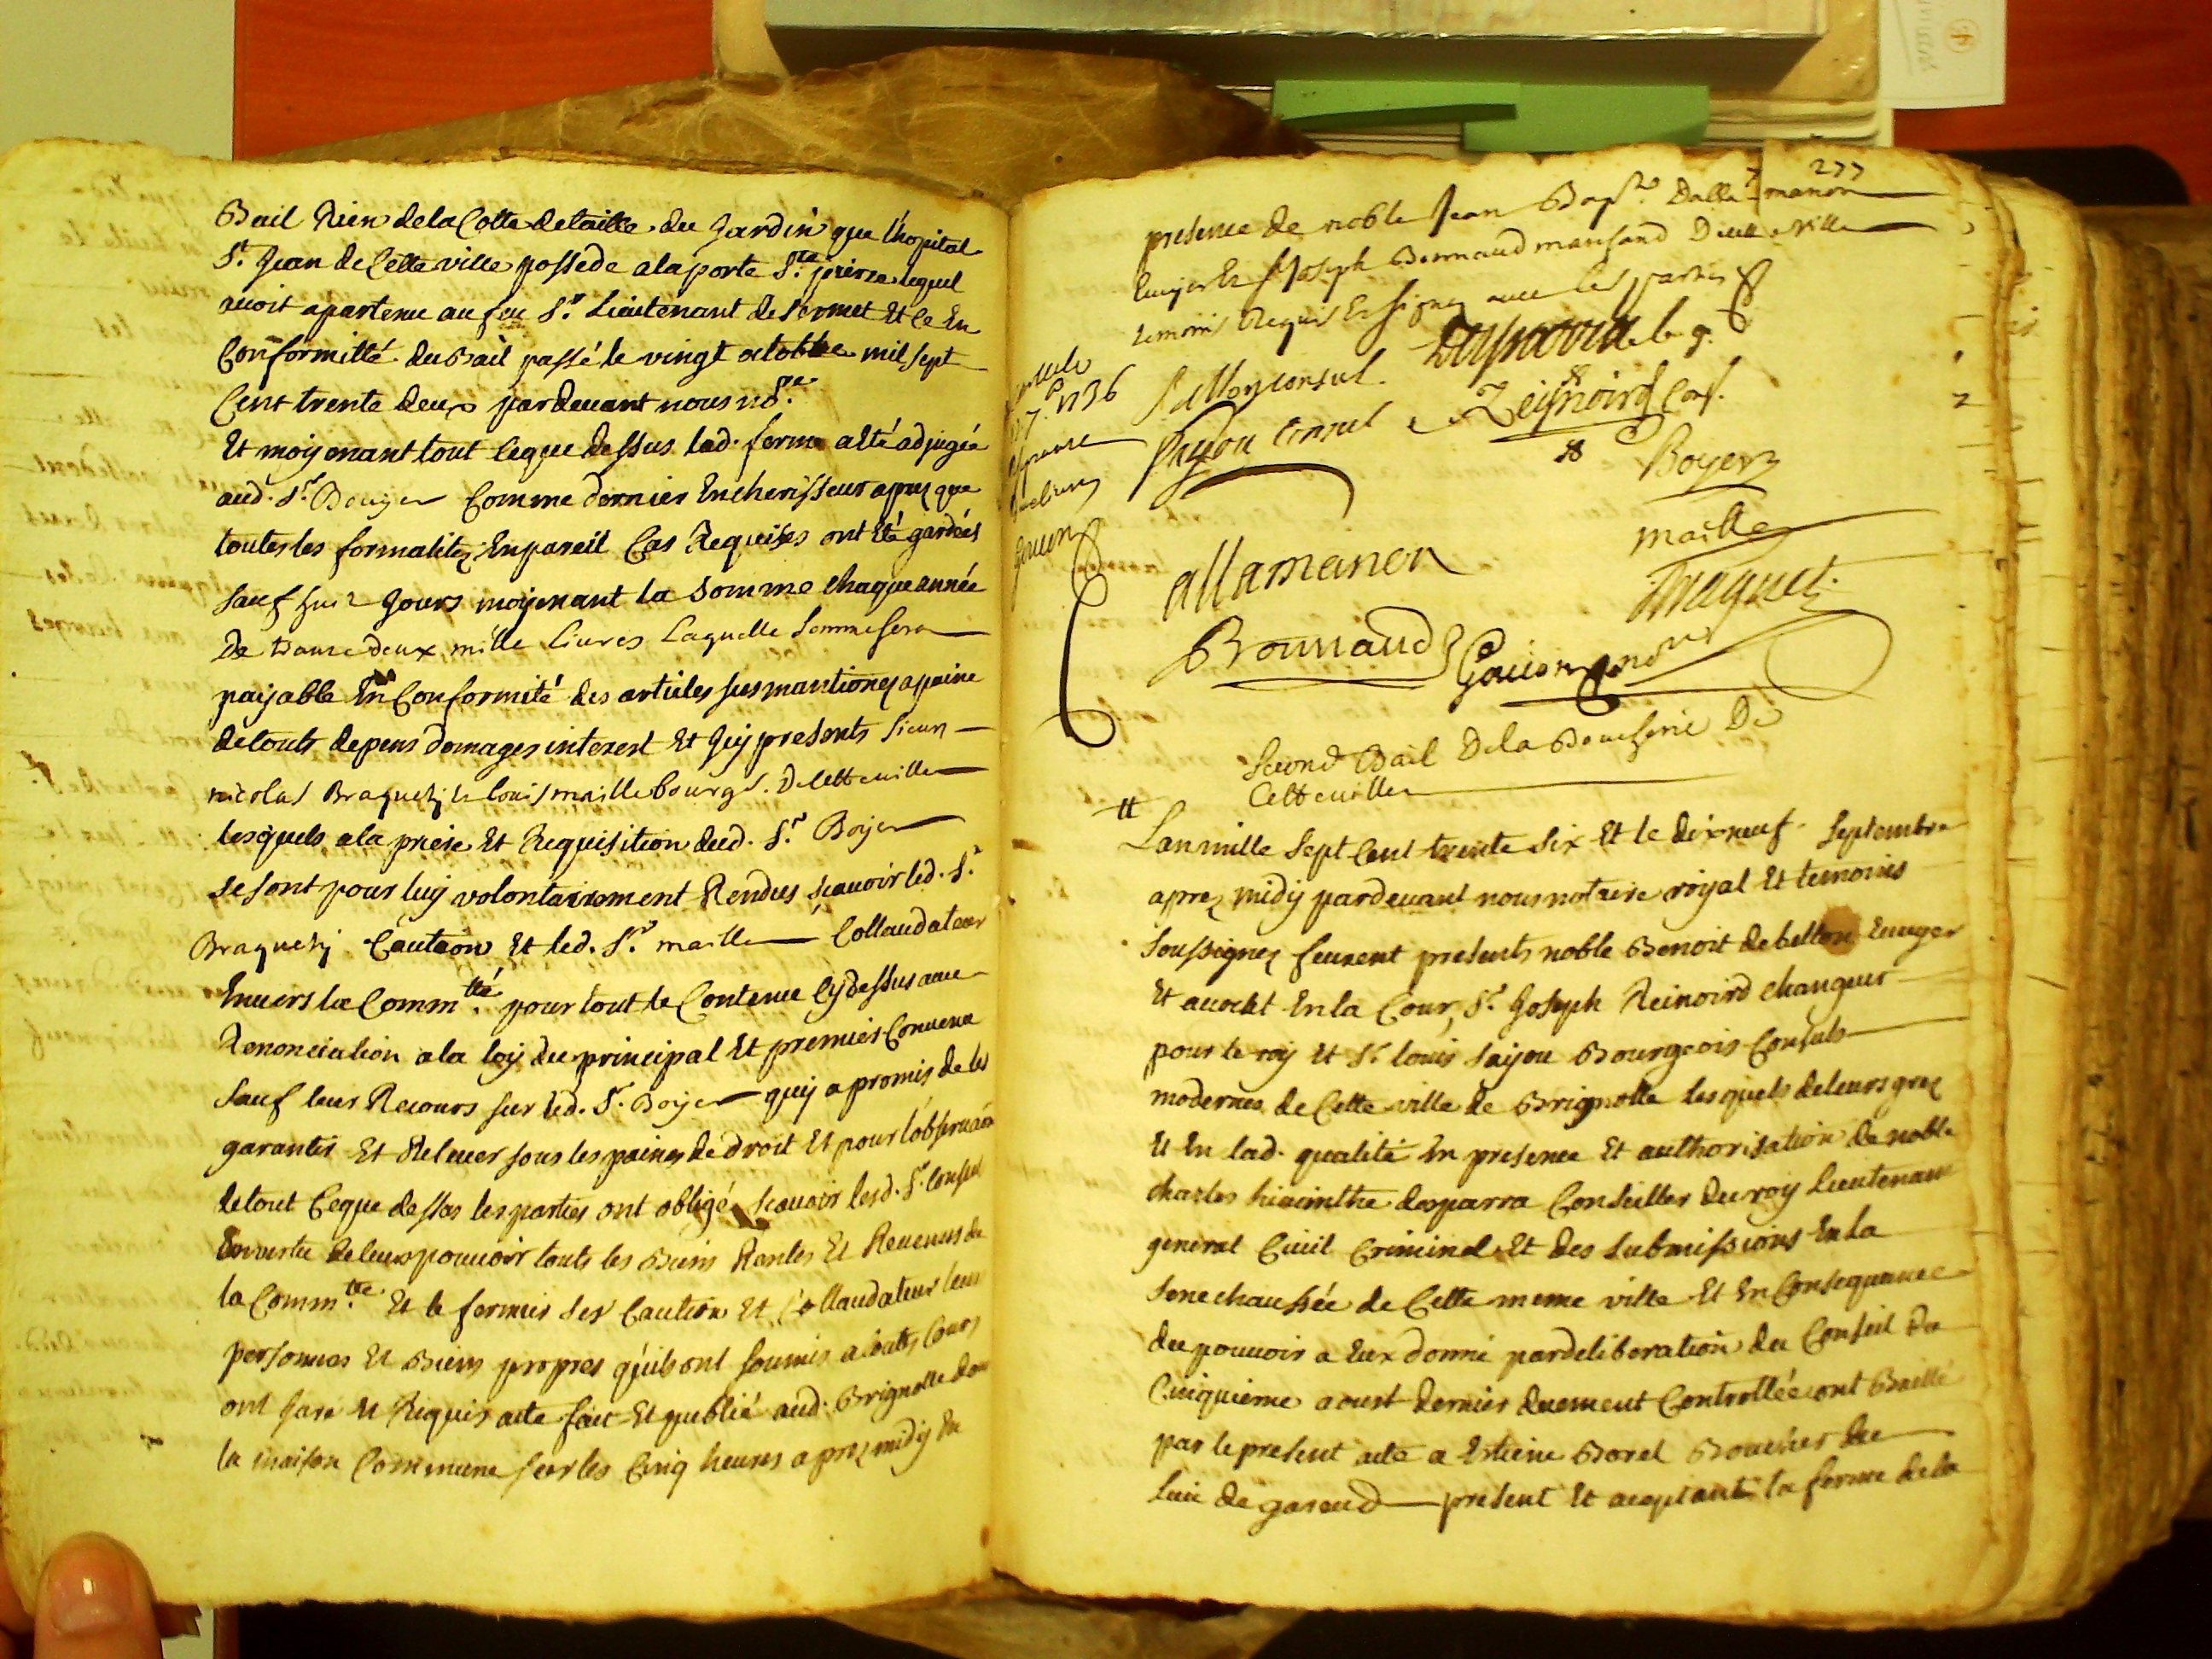 Bail Rien dela Cotte detaille du Jardin que l'hopital
St. Jean de Cette ville possede ala porte Ste. pierre lequel
avoit apartenu au feu Sr. Lieutenant de Et Ce En
Conformitté du Bail passé le vingt octobre mil sept
Cent trente deux pardevant nous nore.
Et moyenant tout ceque dessus lad. ferme a eté adjugée
aud. Sr. Bouyer Comme dernier Encherisseur aprez que
toutes les formalitez Enpareil Cas Requises ont Eté gardées
sauf huit Jours moyenant la somme chaque année
De deux mille livres Laquelle somme sera
payable En Conformité des articles susmantionez apeine
detouts depens domages interest Et Jcy presents sieurs
nicolas Braquety Et louis maille bourgs. De Cette ville
lesquels ala priere Et Requisition dud. Sr. Boyer
se sont pour luy volontairement Rendus scavoir led. Sr.
Braquety Caution Et led. Sr. maille Collaudateur
Envers la Commtté. pour tout le Contenu Cy dessus avec
Renonciation ala loy du principal Et premier Convenu
sauf leur Recours sur led. Sr. Boyer quy a promis de les
garantir Et Relever sous les peines de droit Et pour l'observaon
detout Ceque dessus les parties ont obligé scavoir lesd. Srs. Consuls
En vertu de leur pouvoir touts les Biens Rentes Et Revenus de
la Commtté. Et le fermier ses Caution Et Collaudateur leurs
personnes Et Biens propres qu'ils ont soumis a toutes Cours
ont juré Et Requis acte fait Et publié aud. Brignolle dans
la maison Commune sur les Cinq heures aprez midy En
277
presence de noble Jean Bapte. Dallamanon
Ecuyer Et Sr Joseph Bonnaud marchand De cette ville
temoins Requis Et signez avec les parties
1736
Consul
Sayou Consul Reynoird Cons.
Boyer
maille
allamanon
Braquety
Bonnaud
Gavon nore
Second Bail De la Boucherie De
Cette ville
Lan mille sept Cent trente six Et le dixneuf septembre
aprez midy pardevant nous notaire royal Et temoins
soussignez feurent presents noble Benoit de bellon Ecuyer
Et avocat En la Cour, Sr. Joseph Reinoird changeur
pour le roy Et Sr. louis Sayou Bourgeois Consuls
modernes de Cette ville de Brignolle lesquels de leurs grez
Et En lad. qualité En presence Et authorisation de noble
charles hiacinthe desparra Conseiller du roy Lieutenant
general Civil Criminel Et des submissions En la
senechaussée de Cette meme ville Et En Consequance
du pouvoir a Eux donné pardeliberation du Conseil du
Cinquieme aoust dernier duement Controllée ont Baillé
par le present acte a Estiene Borel Boucher du
Luc de garend present Et aceptant la ferme de la